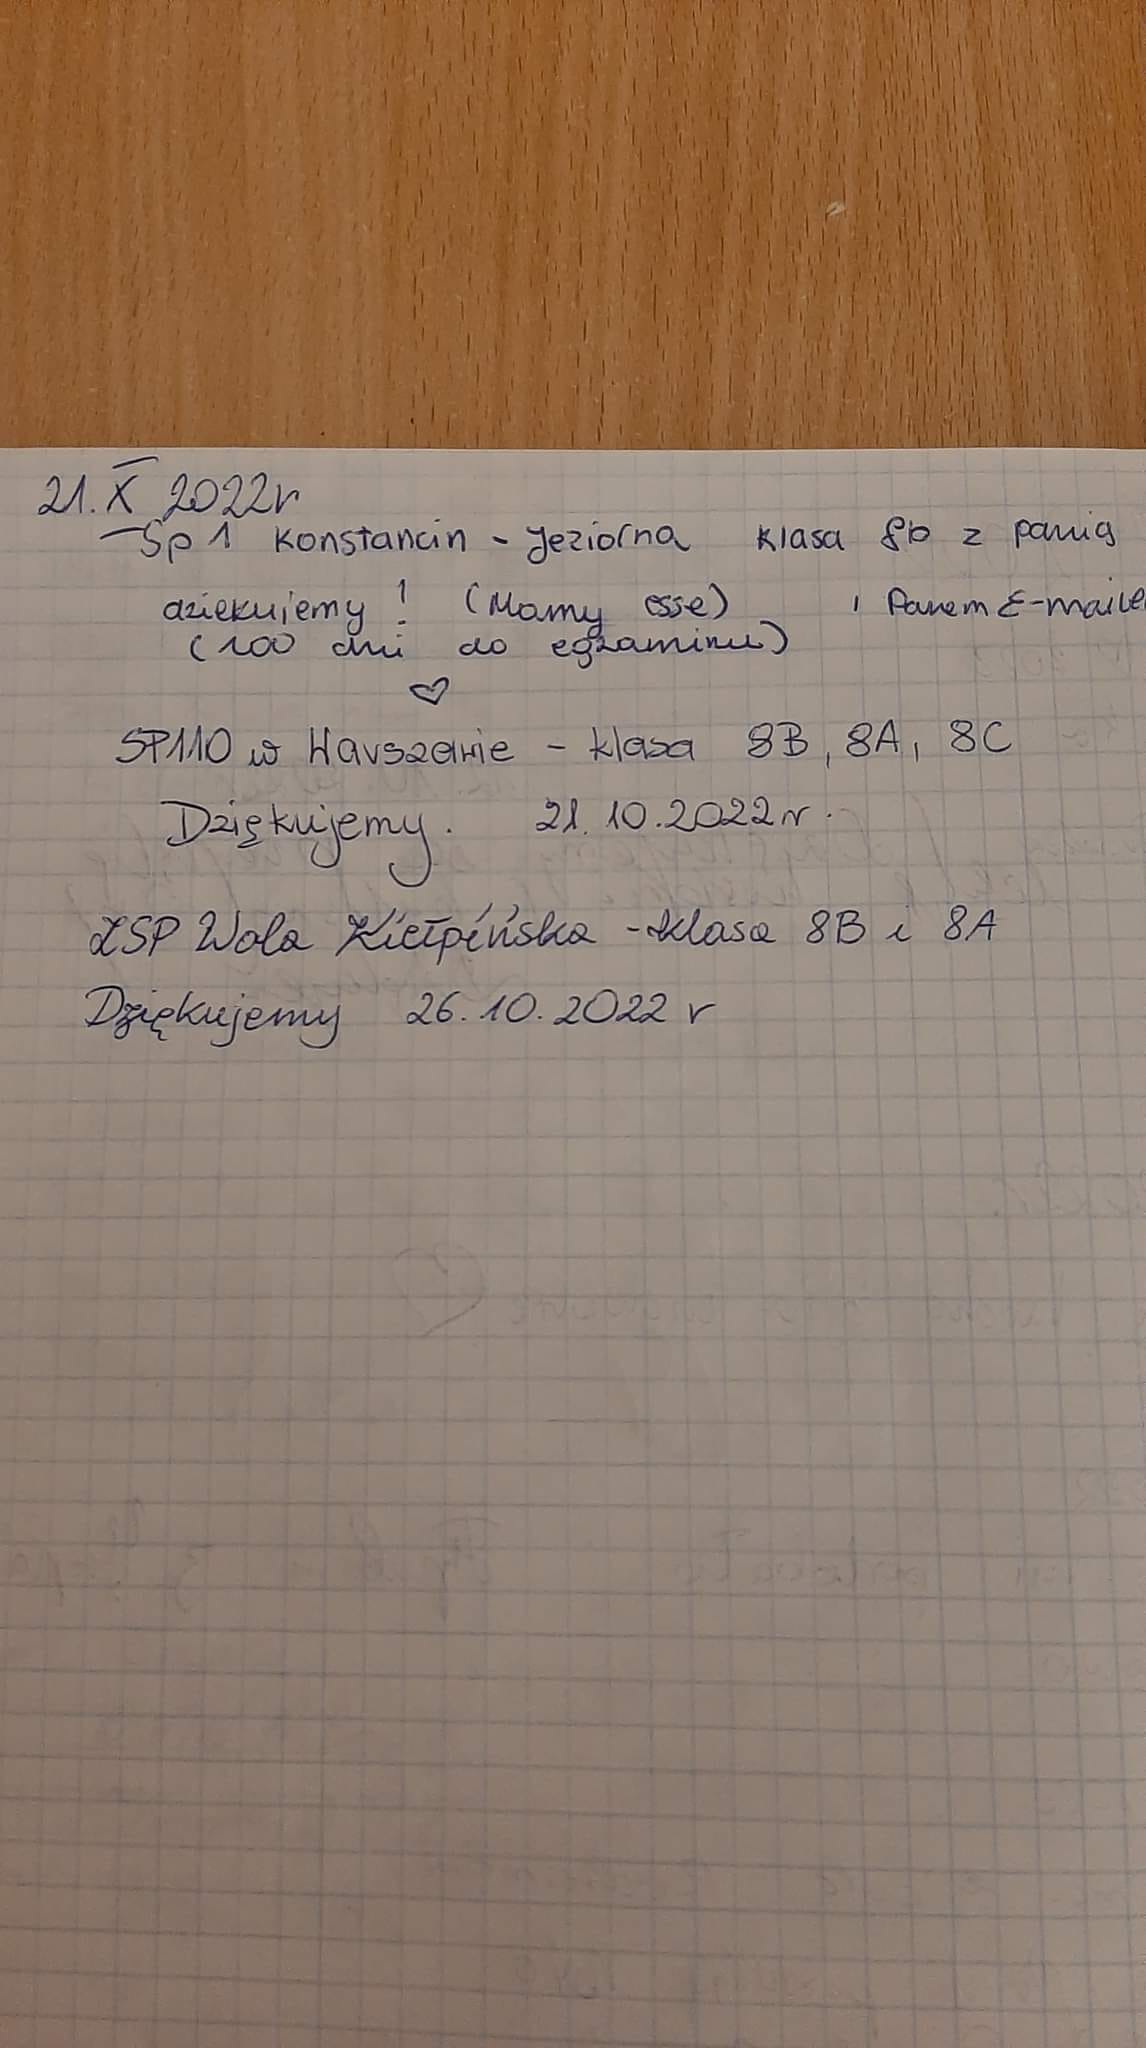 21.X 2022r
Sp 1 Konstancin - Jeziorna klasa 8b z panią
dziekujemy! (Mamy esse) i Panem E-maile
(100 dni do egzaminu)
♡
SP110 w Warszawie - klasa 8B, 8A, 8C
Dziękujemy. 21.10.2022r.
ZSP Wola Kiełpińska - klasa 8B i 8A
Dziękujemy 26.10.2022 r